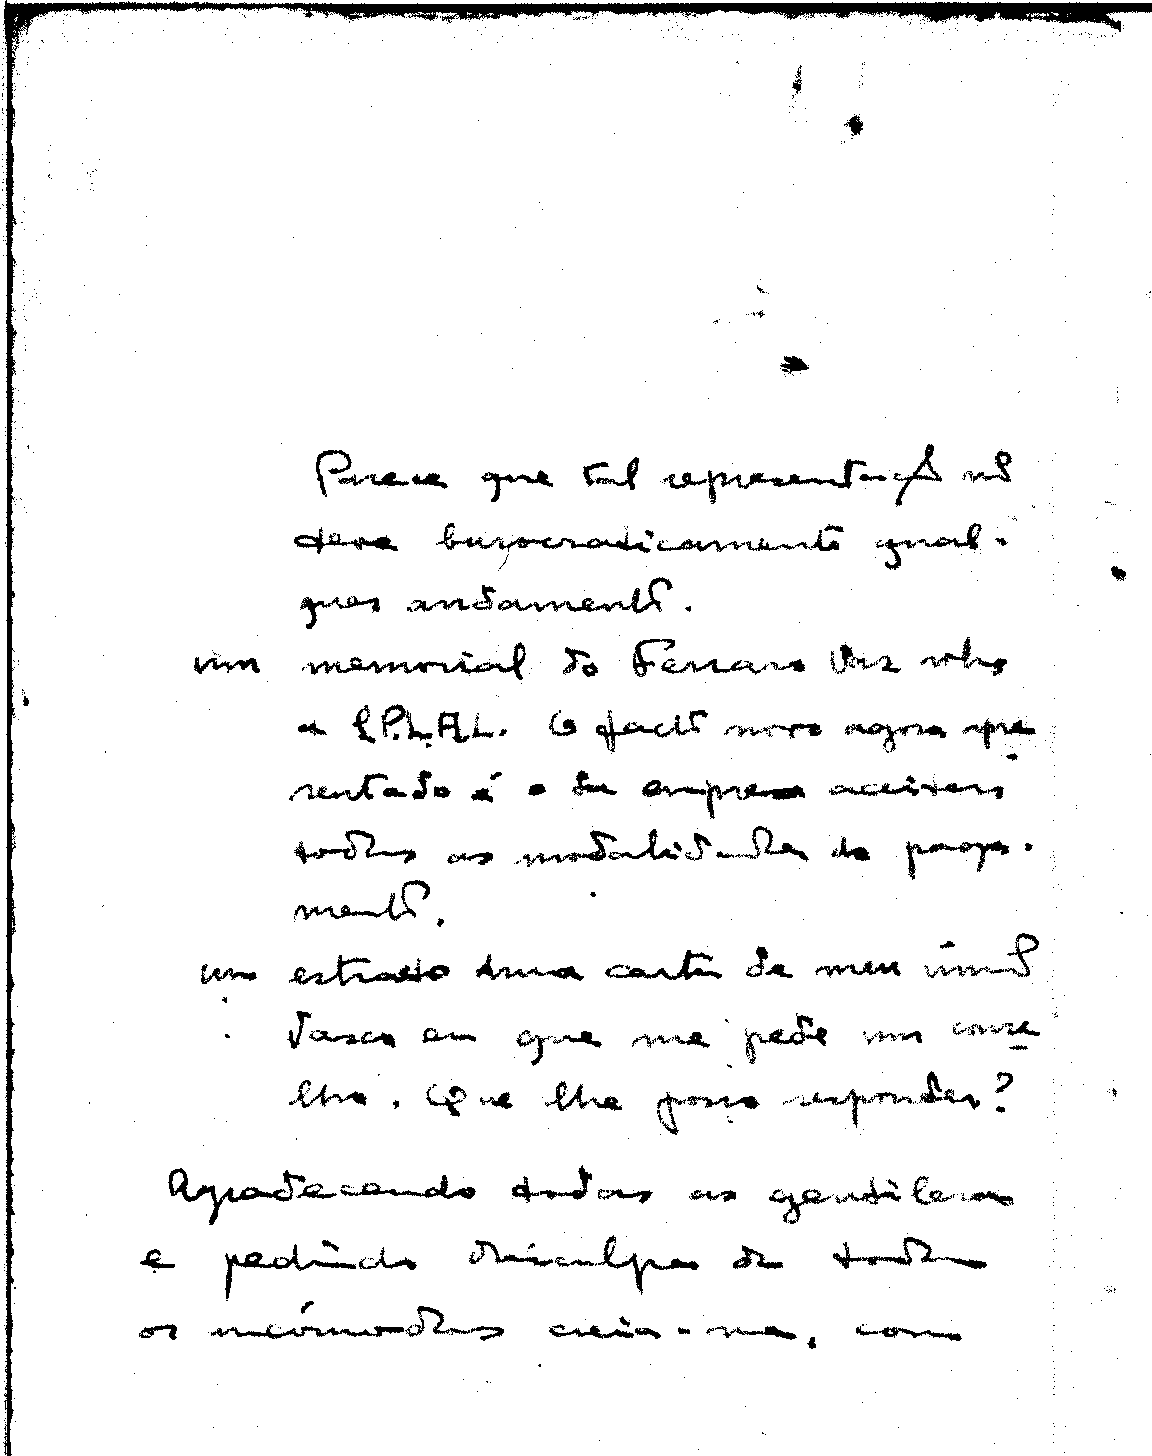 Parece que tal representação não
teve burocraticamente qual-
quer andamento.
um memorial do Ferraro Vaz sobre
a S.P.L.A.L. O facto novo agora apre
sentado é o da empresa aceitar
todas as modalidades de paga-
mento.
um extracto duma carta de meu irmão
Vasco em que me pede um conse
lho. Que lhe posso responder?
Agradecendo todas as gentilezas
e pedindo desculpa de todos
os incómodos creia-me, com